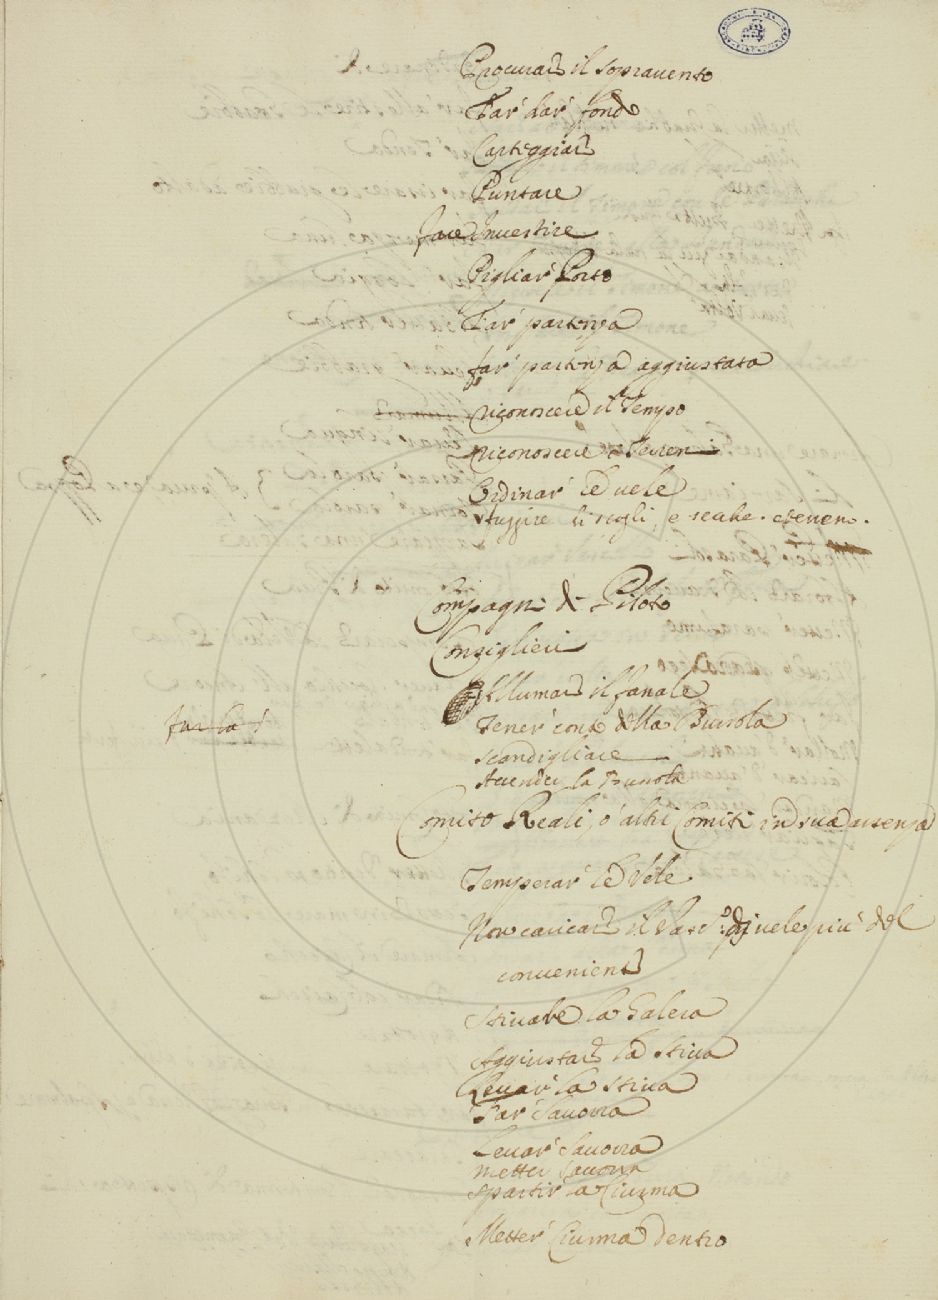 Procurare il sopravento
Far' dar' fondo
Carteggiare
Puntare
fare Investire
Pigliar' Porto
Far' partenza
far' partenza aggiustata
riconoscere il Tempo
riconoscere Terreni
Ordinar' le vele
fuggire li scogli, e secche. e terreni.
Compagni di Piloto
Consiglieri
Allumare il fanale
far la
Tener' conto della Bussola
scandigliare
Accender la Bussola
Comito Reali, o' altri Comiti in sua assenza
Temperar' le Vele
Non caricare il Vasc.o di vele più del
conveniente
Stivare la Galera
Aggiustare la stiva
Levar' la stiva
Far' Savorra
Levar' Savorra
Metter Savorra
spartir' la Ciurma
Metter' Ciurma dentro